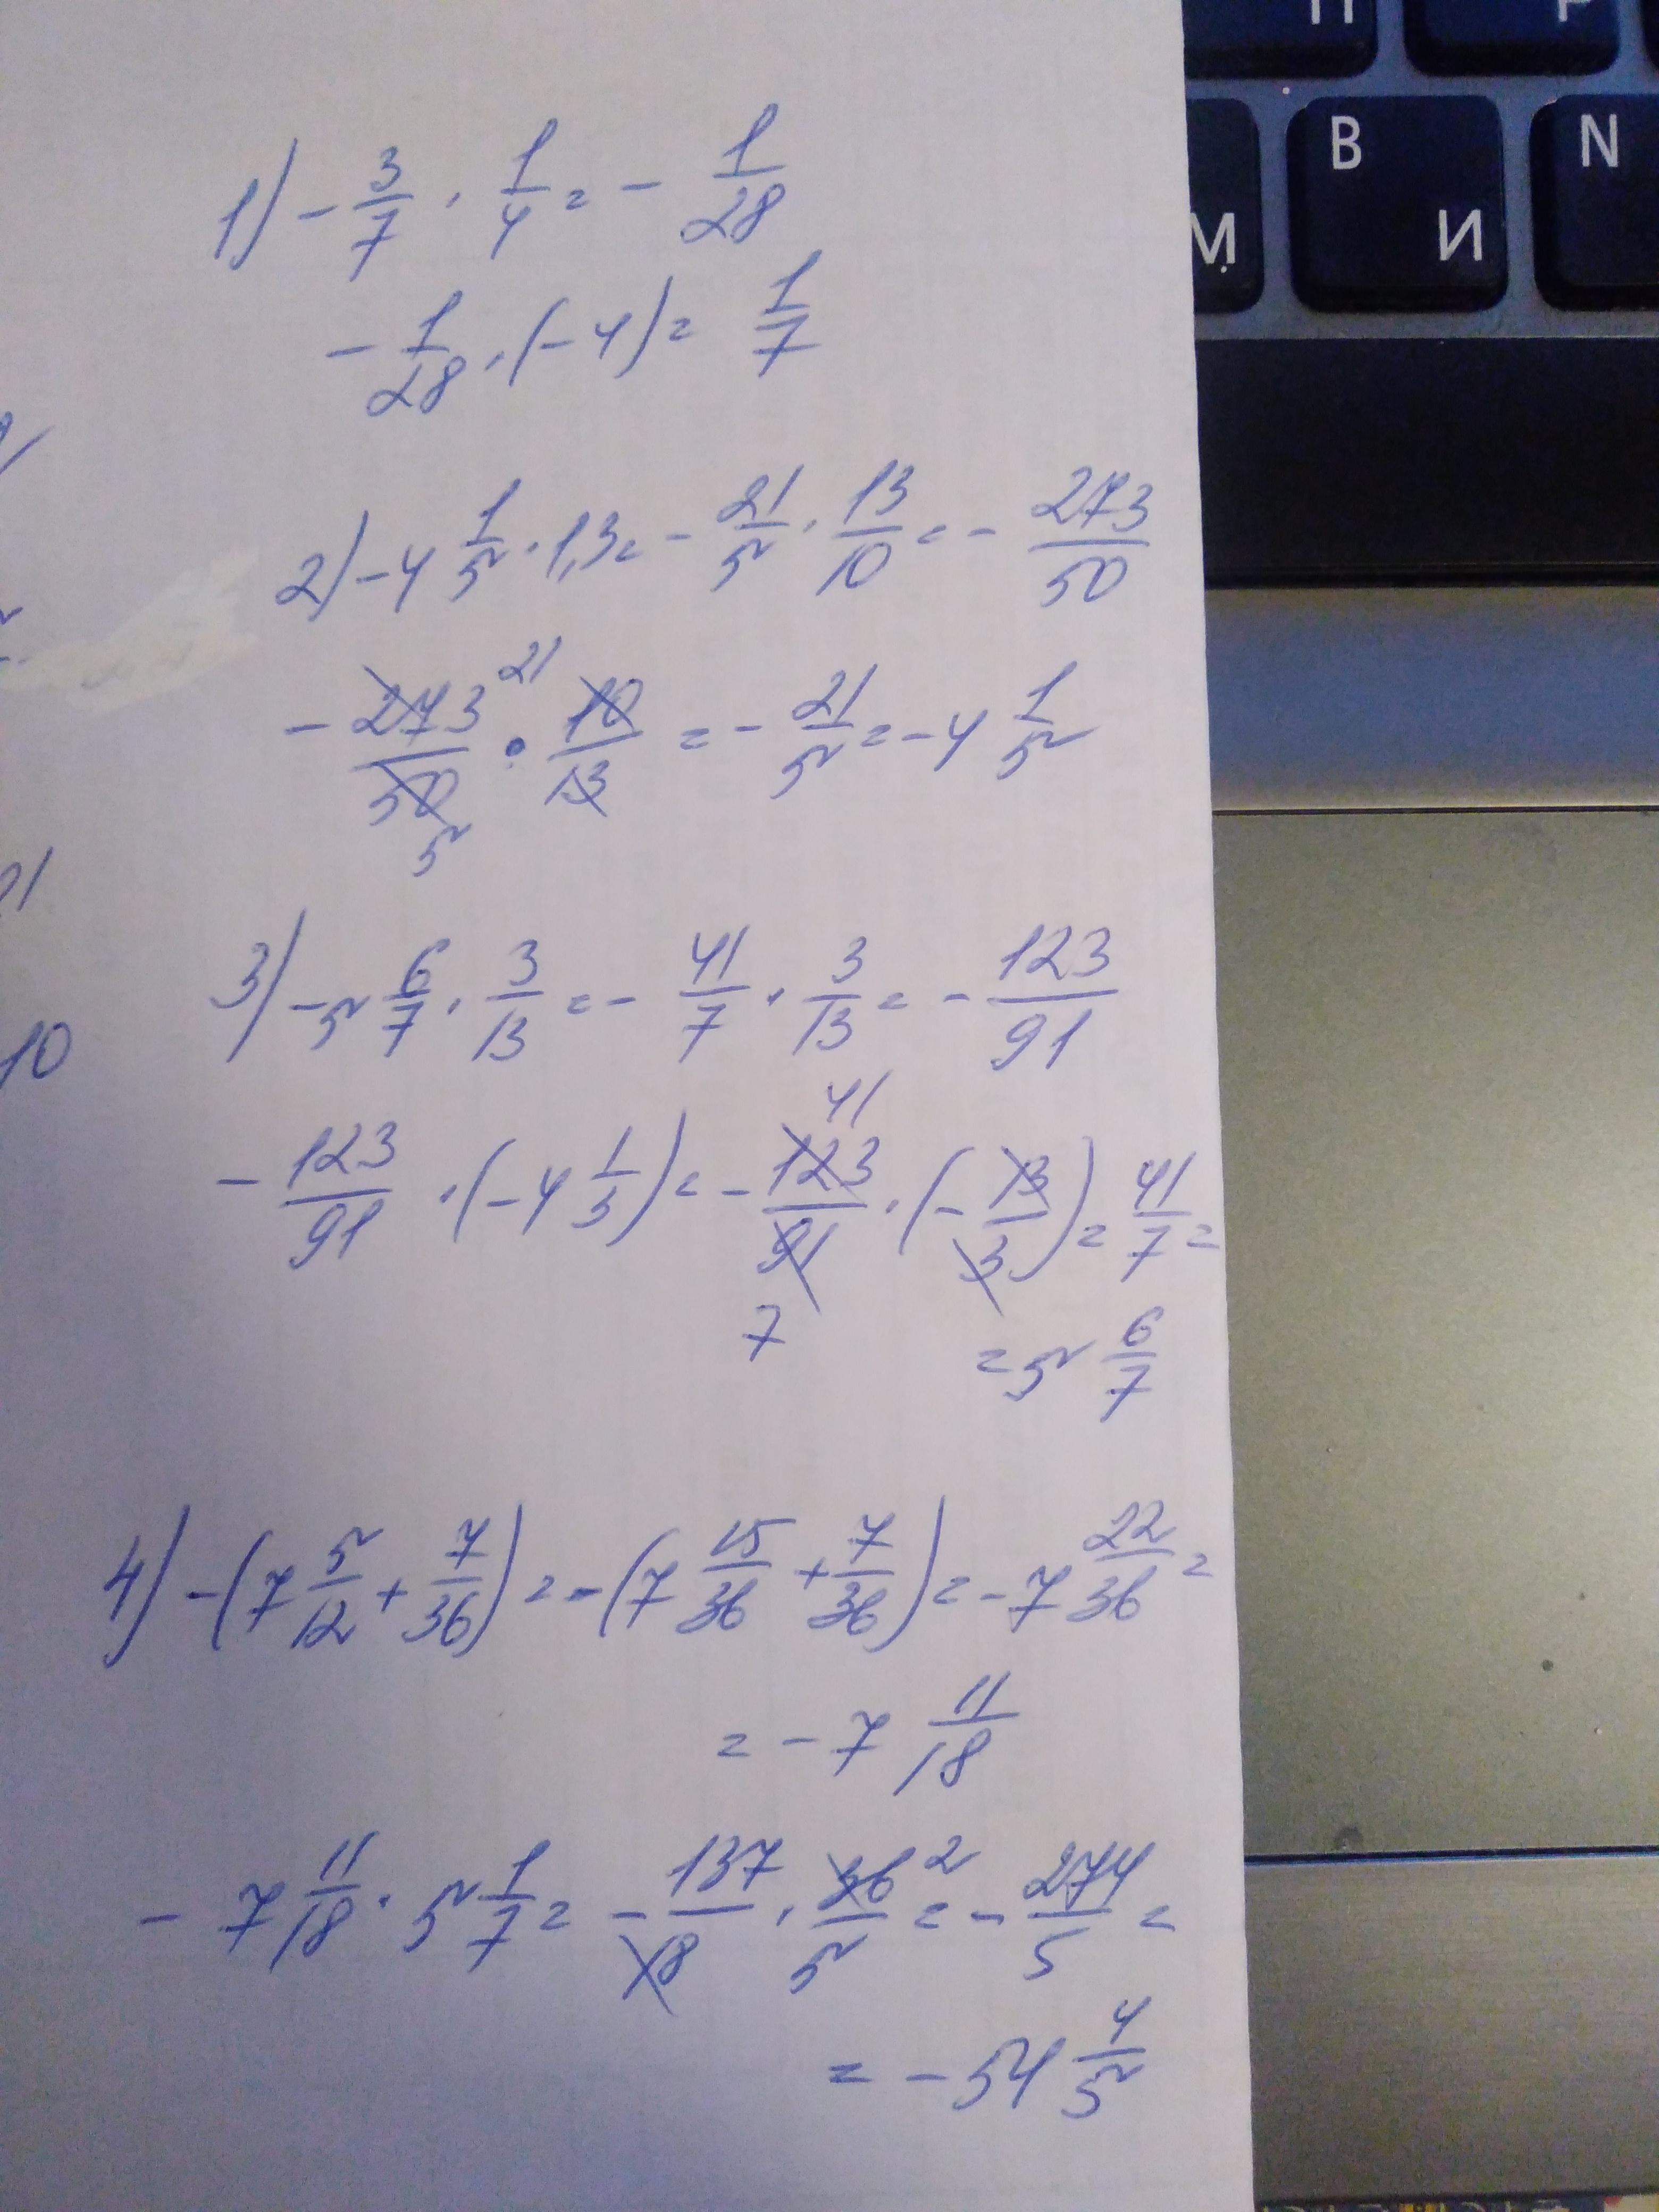 1) -3/7 · 1/4 = -1/28
-1/28 · (-4) = 1/7
2) -4 1/5 · 1,3 = -21/5 · 13/10 = -273/50
21
-273/50 · 10/13 = -21/5 = -4 1/5
5
3) -5 6/7 · 3/13 = -41/7 · 3/13 = -123/91
41
-123/91 · (-4 1/3) = -123/91 · (-13/3) = 41/7 =
7
= 5 6/7
4) -(7 5/12 + 7/36) = -(7 15/36 + 7/36) = -7 22/36 =
= -7 11/18
2
-7 11/18 · 5 1/7 = -137/18 · 36/5 = -274/5 =
= -54 4/5
21
10
П
Р
М
B
И
N